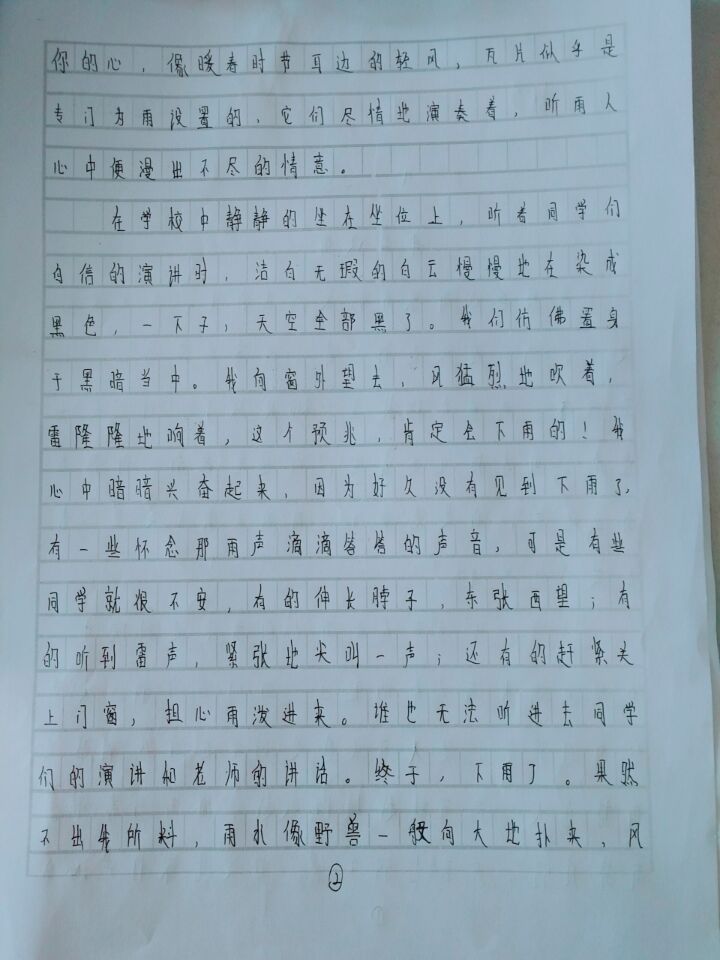 你的心，像暖春时节耳边的轻风，瓦片似乎是
专门为雨设置的，它们尽情地演奏着，听雨人
心中便漫出不尽的情意。
在学校中静静的坐在坐位上，听着同学们
自信的演讲时，洁白无瑕的白云慢慢地在染成
黑色，一下子，天空全部黑了。我们仿佛置身
于黑暗当中。我向窗外望去，风猛烈地吹着，
雷隆隆地响着，这个预兆，肯定会下雨的！我
心中暗暗兴奋起来，因为好久没有见到下雨了，
有一些怀念那雨声滴滴答答的声音，可是有些
同学就很不安，有的伸长脖子，东张西望；有
的听到雷声，紧张地尖叫一声；还有的赶紧关
上门窗，担心雨泼进来。谁也无法听进去同学
们的演讲和老师的讲话。终于，下雨了。果然
不出我所料，雨水像野兽一般向大地扑来，风
②